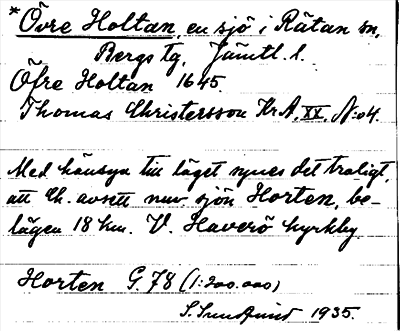 *Övre Holtan, en sjö i Rätan sn,
Bergs tg, Jämtl. l.
Öfre Holtan 1645.
Thomas Christersson Kr.A. XX. N:o 4.
Med hänsyn till läget synes det troligt,
att Ch. avsett nuv. sjön Horten, be-
lägen 18 km. V. Haverö kyrkby.
Horten G. 78 (1:200.000)
S. Sundquist 1935.